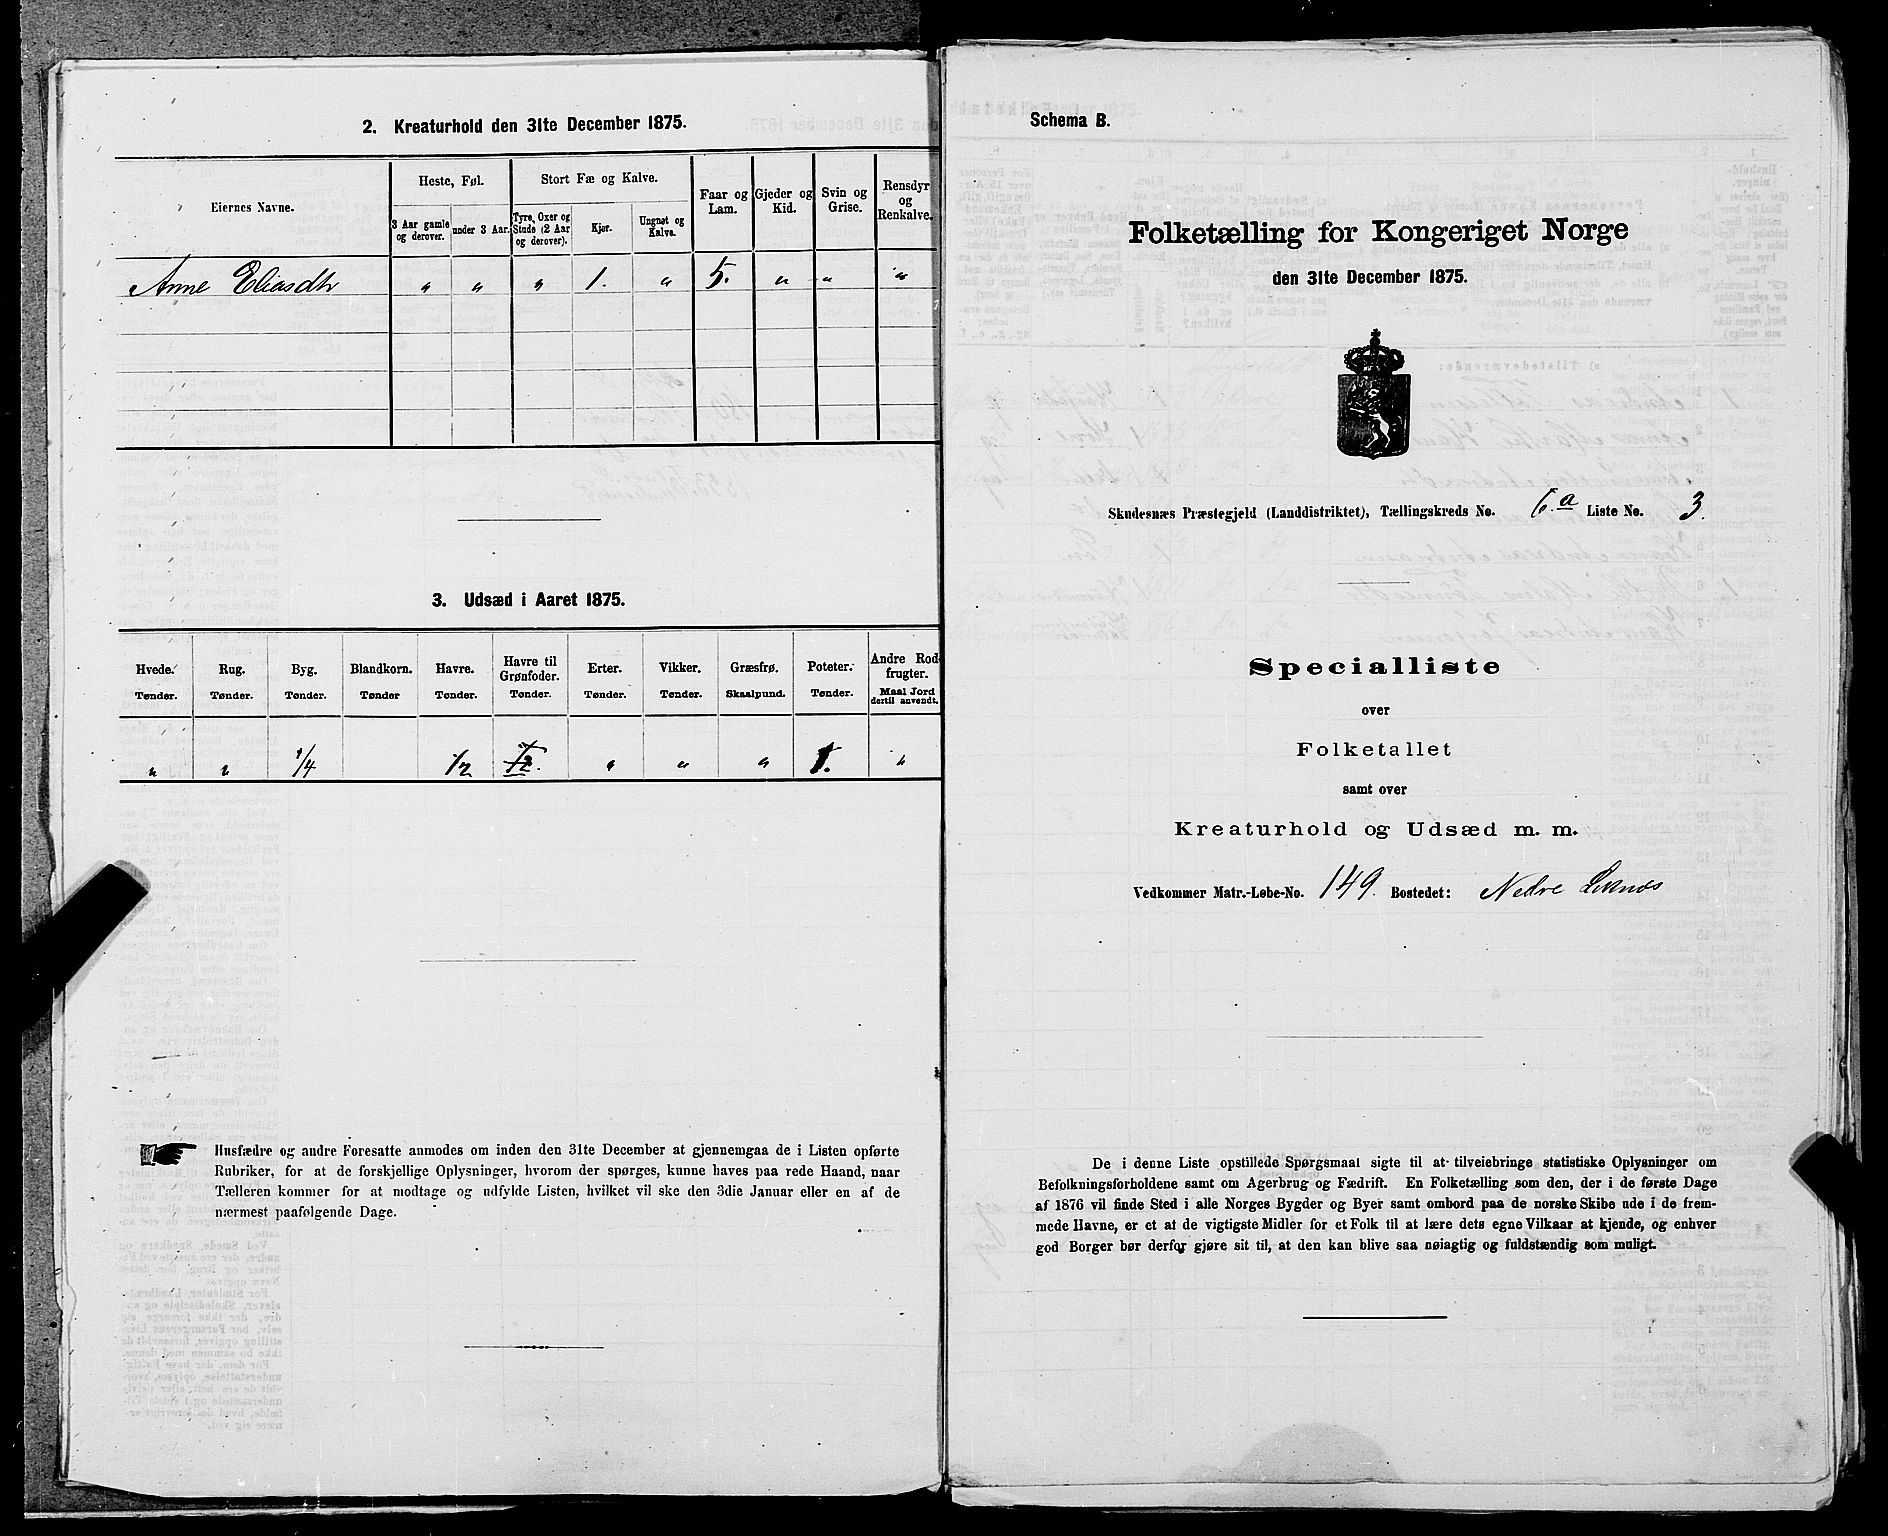 2. Kreaturhold den 31te December 1875.
Eiernes Navne.
Heste, Føl.
Stort Fæ og Kalve.
Faar og Lam.
Gjeder og Kid.
Svin og Grise.
Rensdyr og Renkalve.
3 Aar gamle og derover.
under 3 Aar.
Tyre, Oxer og Stude (2 Aar og derover).
Kjør.
Ungnøt og Kalve.
Anne Eliasdtr " " " 1. " 5. " " "
3. Udsæd i Aaret 1875.
Hvede. Rug. Byg. Blandkorn. Havre. Havre til Grønfoder. Erter. Vikker. Græsfrø. Poteter. Andre Rodfrugter.
Tønder. Tønder. Tønder. Tønder Tønder. Tønder. Tønder. Tønder. Skaalpund. Tønder. Maal Jord dertil anvendt.
" " 1/4 1/2 " " " 1. "
Husfædre og andre Foresatte anmodes om inden den 31te December at gjennemgaa de i Listen opførte
Rubriker, for at de forskjellige Oplysninger, hvorom der spørges, kunne haves paa rede Haand, naar
Tælleren kommer for at modtage og udfylde Listen, hvilket vil ske den 3die Januar eller en af de
nærmest paafølgende Dage.
Schema B.
Folketælling for Kongeriget Norge
den 31te December 1875.
Skudesnæs Præstegjeld (Landdistriktet), Tællingskreds No. 6.a Liste No. 3.
Specialliste
over
Folketallet
samt over
Kreaturhold og Udsæd m. m.
Vedkommer Matr.-Løbe-No. 149. Bostedet: Nedre
De i denne Liste opstillede Spørgsmaal sigte til at tilveiebringe statistiske Oplysninger om
Befolkningsforholdene samt om Agerbrug og Fædrift. En Folketælling som den, der i de første Dage
af 1876 vil finde Sted i alle Norges Bygder og Byer samt ombord paa de norske Skibe ude i de frem-
mede Havne, er et at de vigtigste Midler for et Folk til at lære dets egne Vilkaar at kjende, og enhver
god Borger bør derfor gjøre sit til, at den kan blive saa nøiagtig og fuldstændig som muligt.